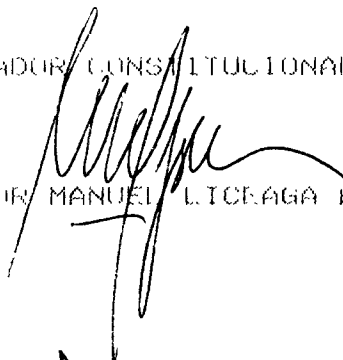 ADOR CONSTITUCIONAL
OR MANUEL LICEAGA